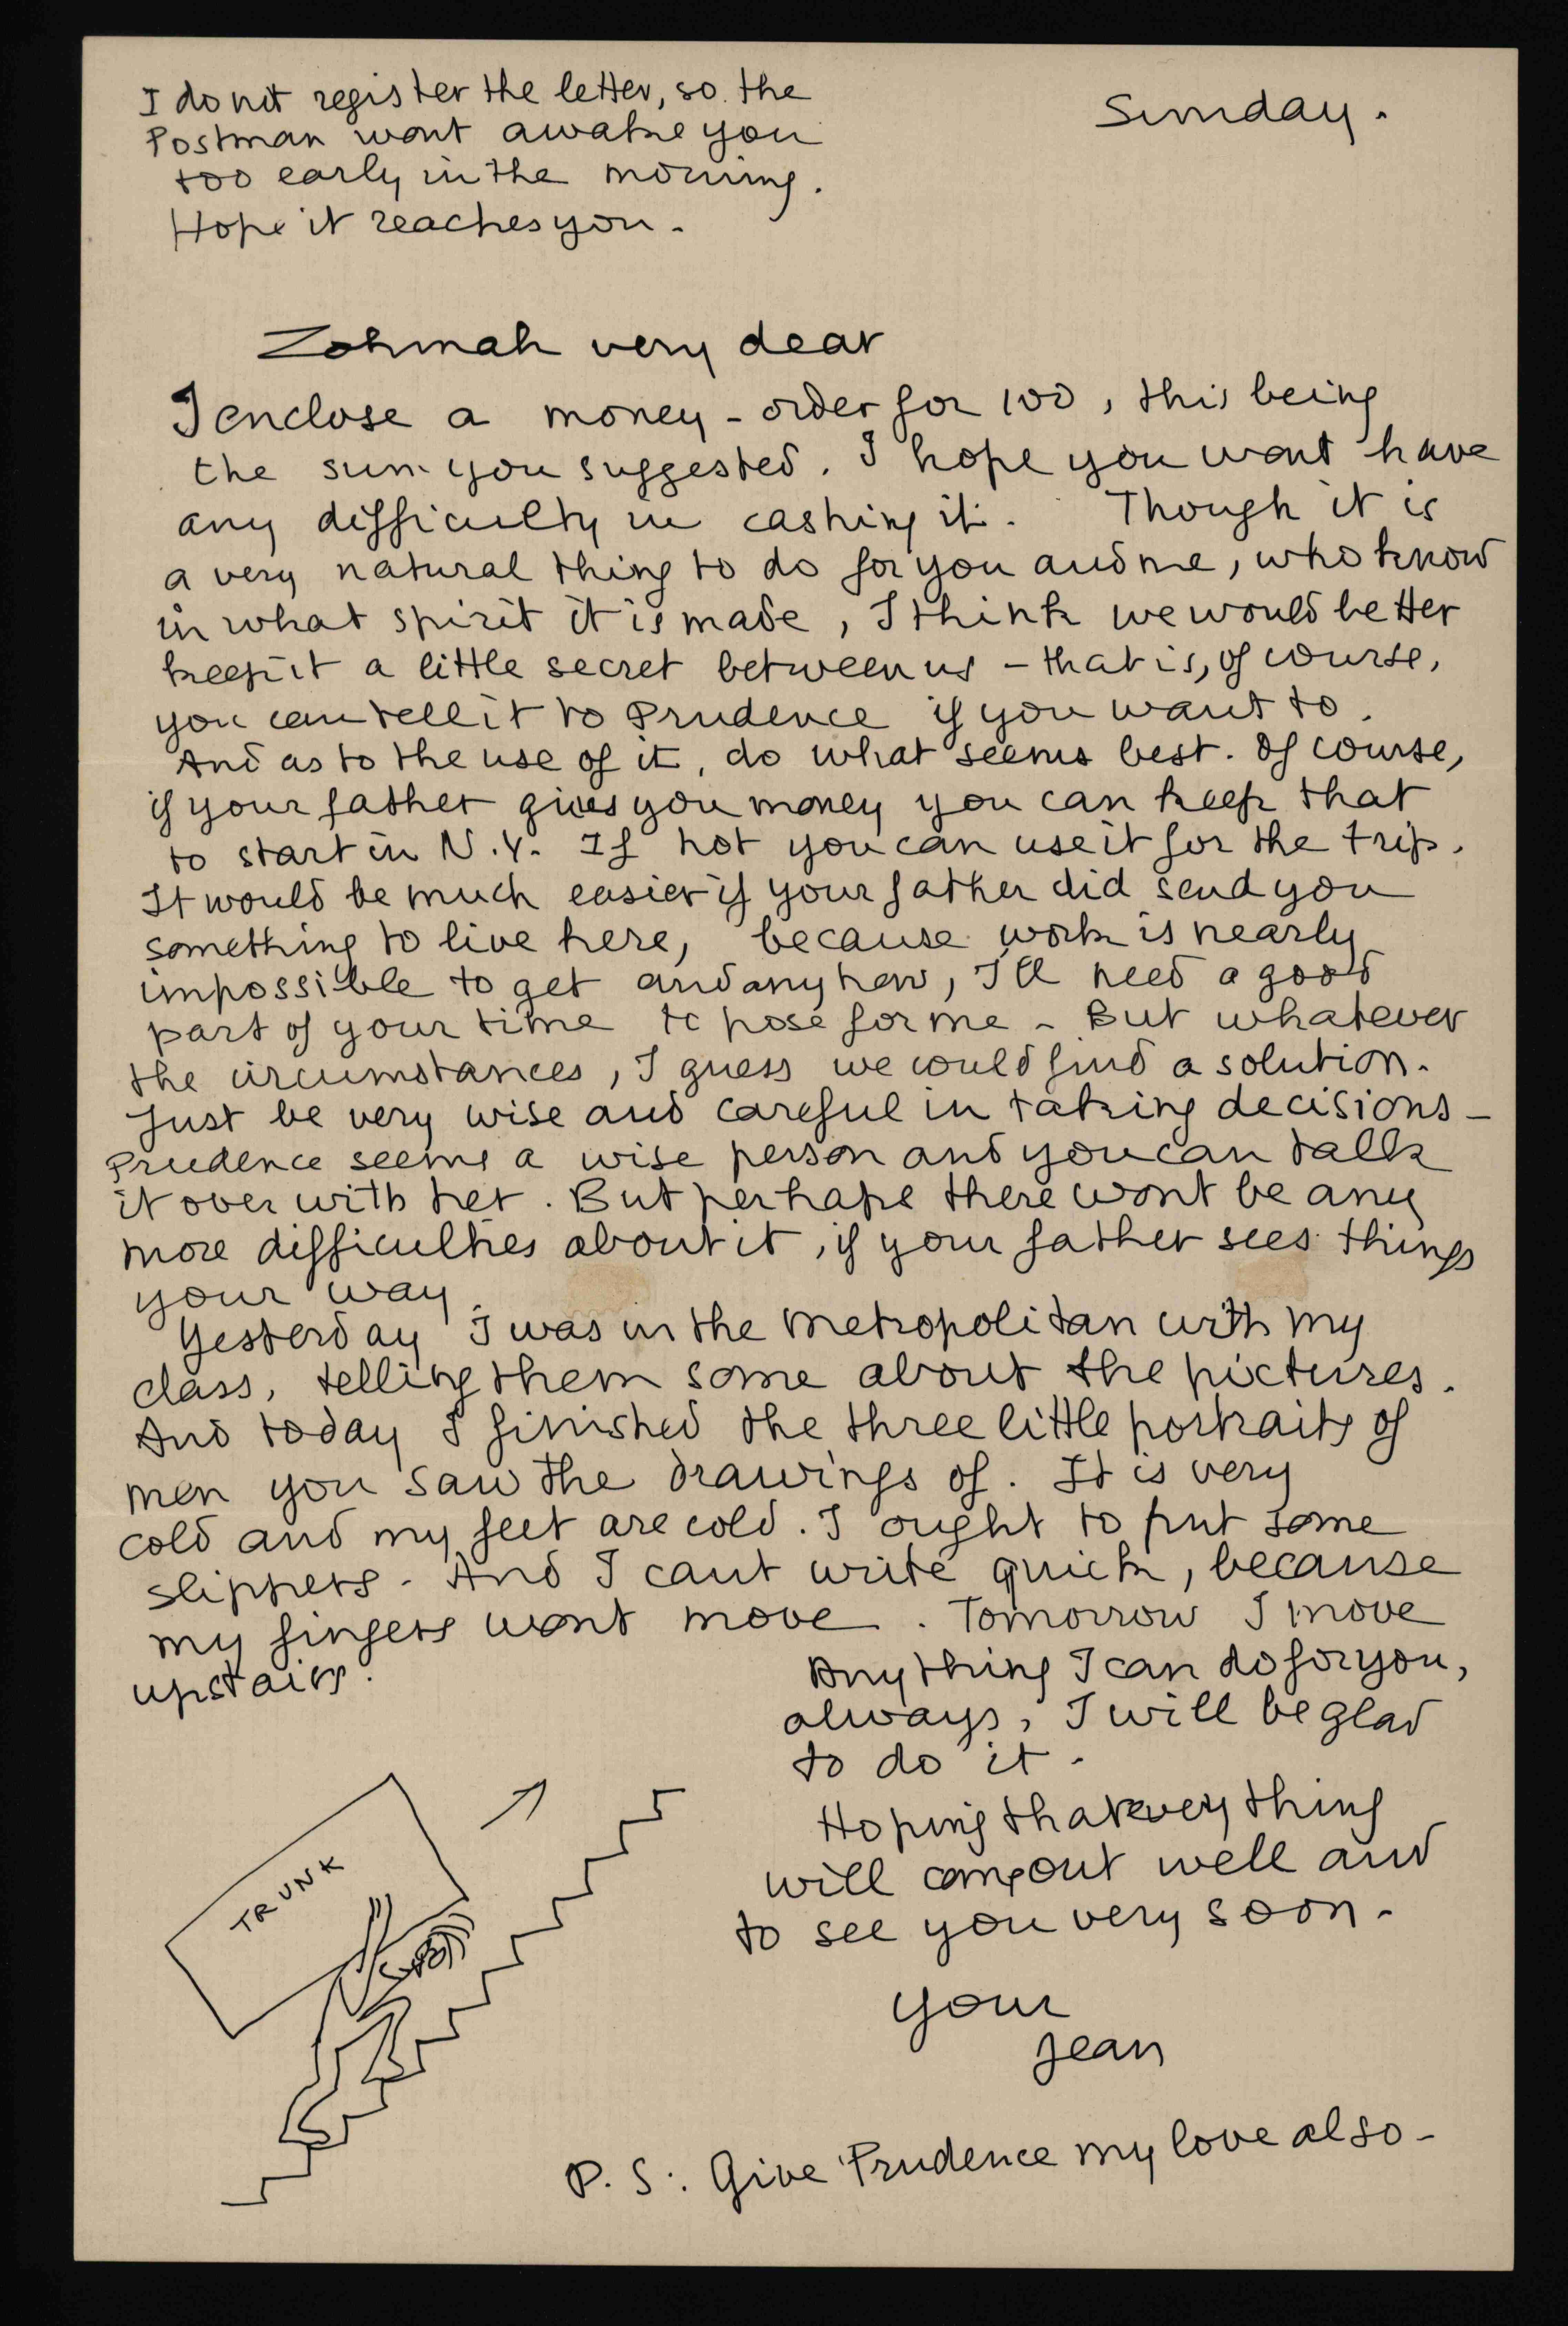 I do not register the letter, so the
Postman wont awake you
too early in the morning.
Hope it reaches you.
Sunday.
Zohmah very dear
I enclose a money-order for 100, this being
the sum you suggested. I hope you wont have
any difficulty in cashing it. Though it is
a very natural thing to do for you and me, who know
in what spirit it is made, I think we would better
keep it a little secret between us - that is, of course,
you can tell it to Prudence if you want to.
And as to the use of it, do what seems best. Of course,
if your father gives you money you can keep that
to start in N.Y. If not you can use it for the trip.
It would be much easier if your father did send you
something to live here, because work is nearly
impossible to get and anyhow, I'll need a good
part of your time to pose for me - But whatever
the circumstances, I guess we could find a solution.
Just be very wise and careful in taking decisions -
Prudence seems a wise person and you can talk
it over with her. But perhaps there wont be any
more difficulties about it, if your father sees things
your way.
Yesterday I was in the Metropolitan with my
class, telling them some about the pictures.
And today I finished the three little portraits of
men you saw the drawings of. It is very
cold and my feet are cold. I ought to put some
slippers. And I cant write quick, because
my fingers wont move. Tomorrow I move
upstairs.
Anything I can do for you,
always, I will be glad
to do it -
Hoping that every thing
will come out well and
to see you very soon -
your
Jean
TRUNK
P.S: Give Prudence my love also -